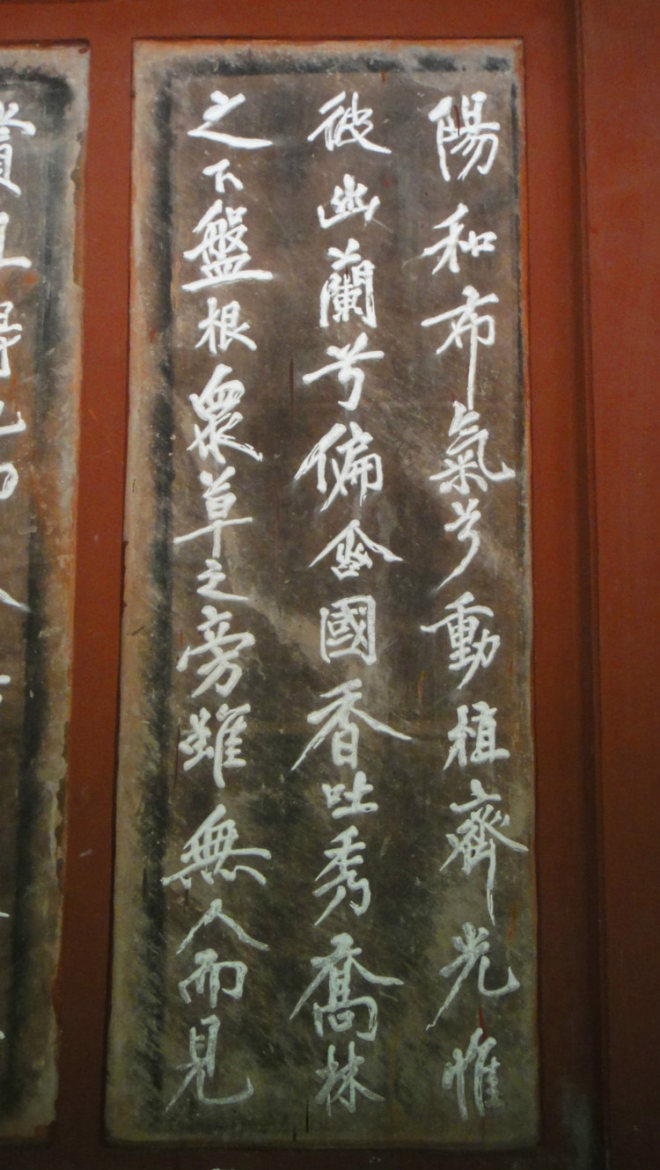 陽和布氣兮動植齊光惟
彼幽蘭兮偏含國香吐秀喬林
之下盤根衆草之旁雖無人而見
賞且得地